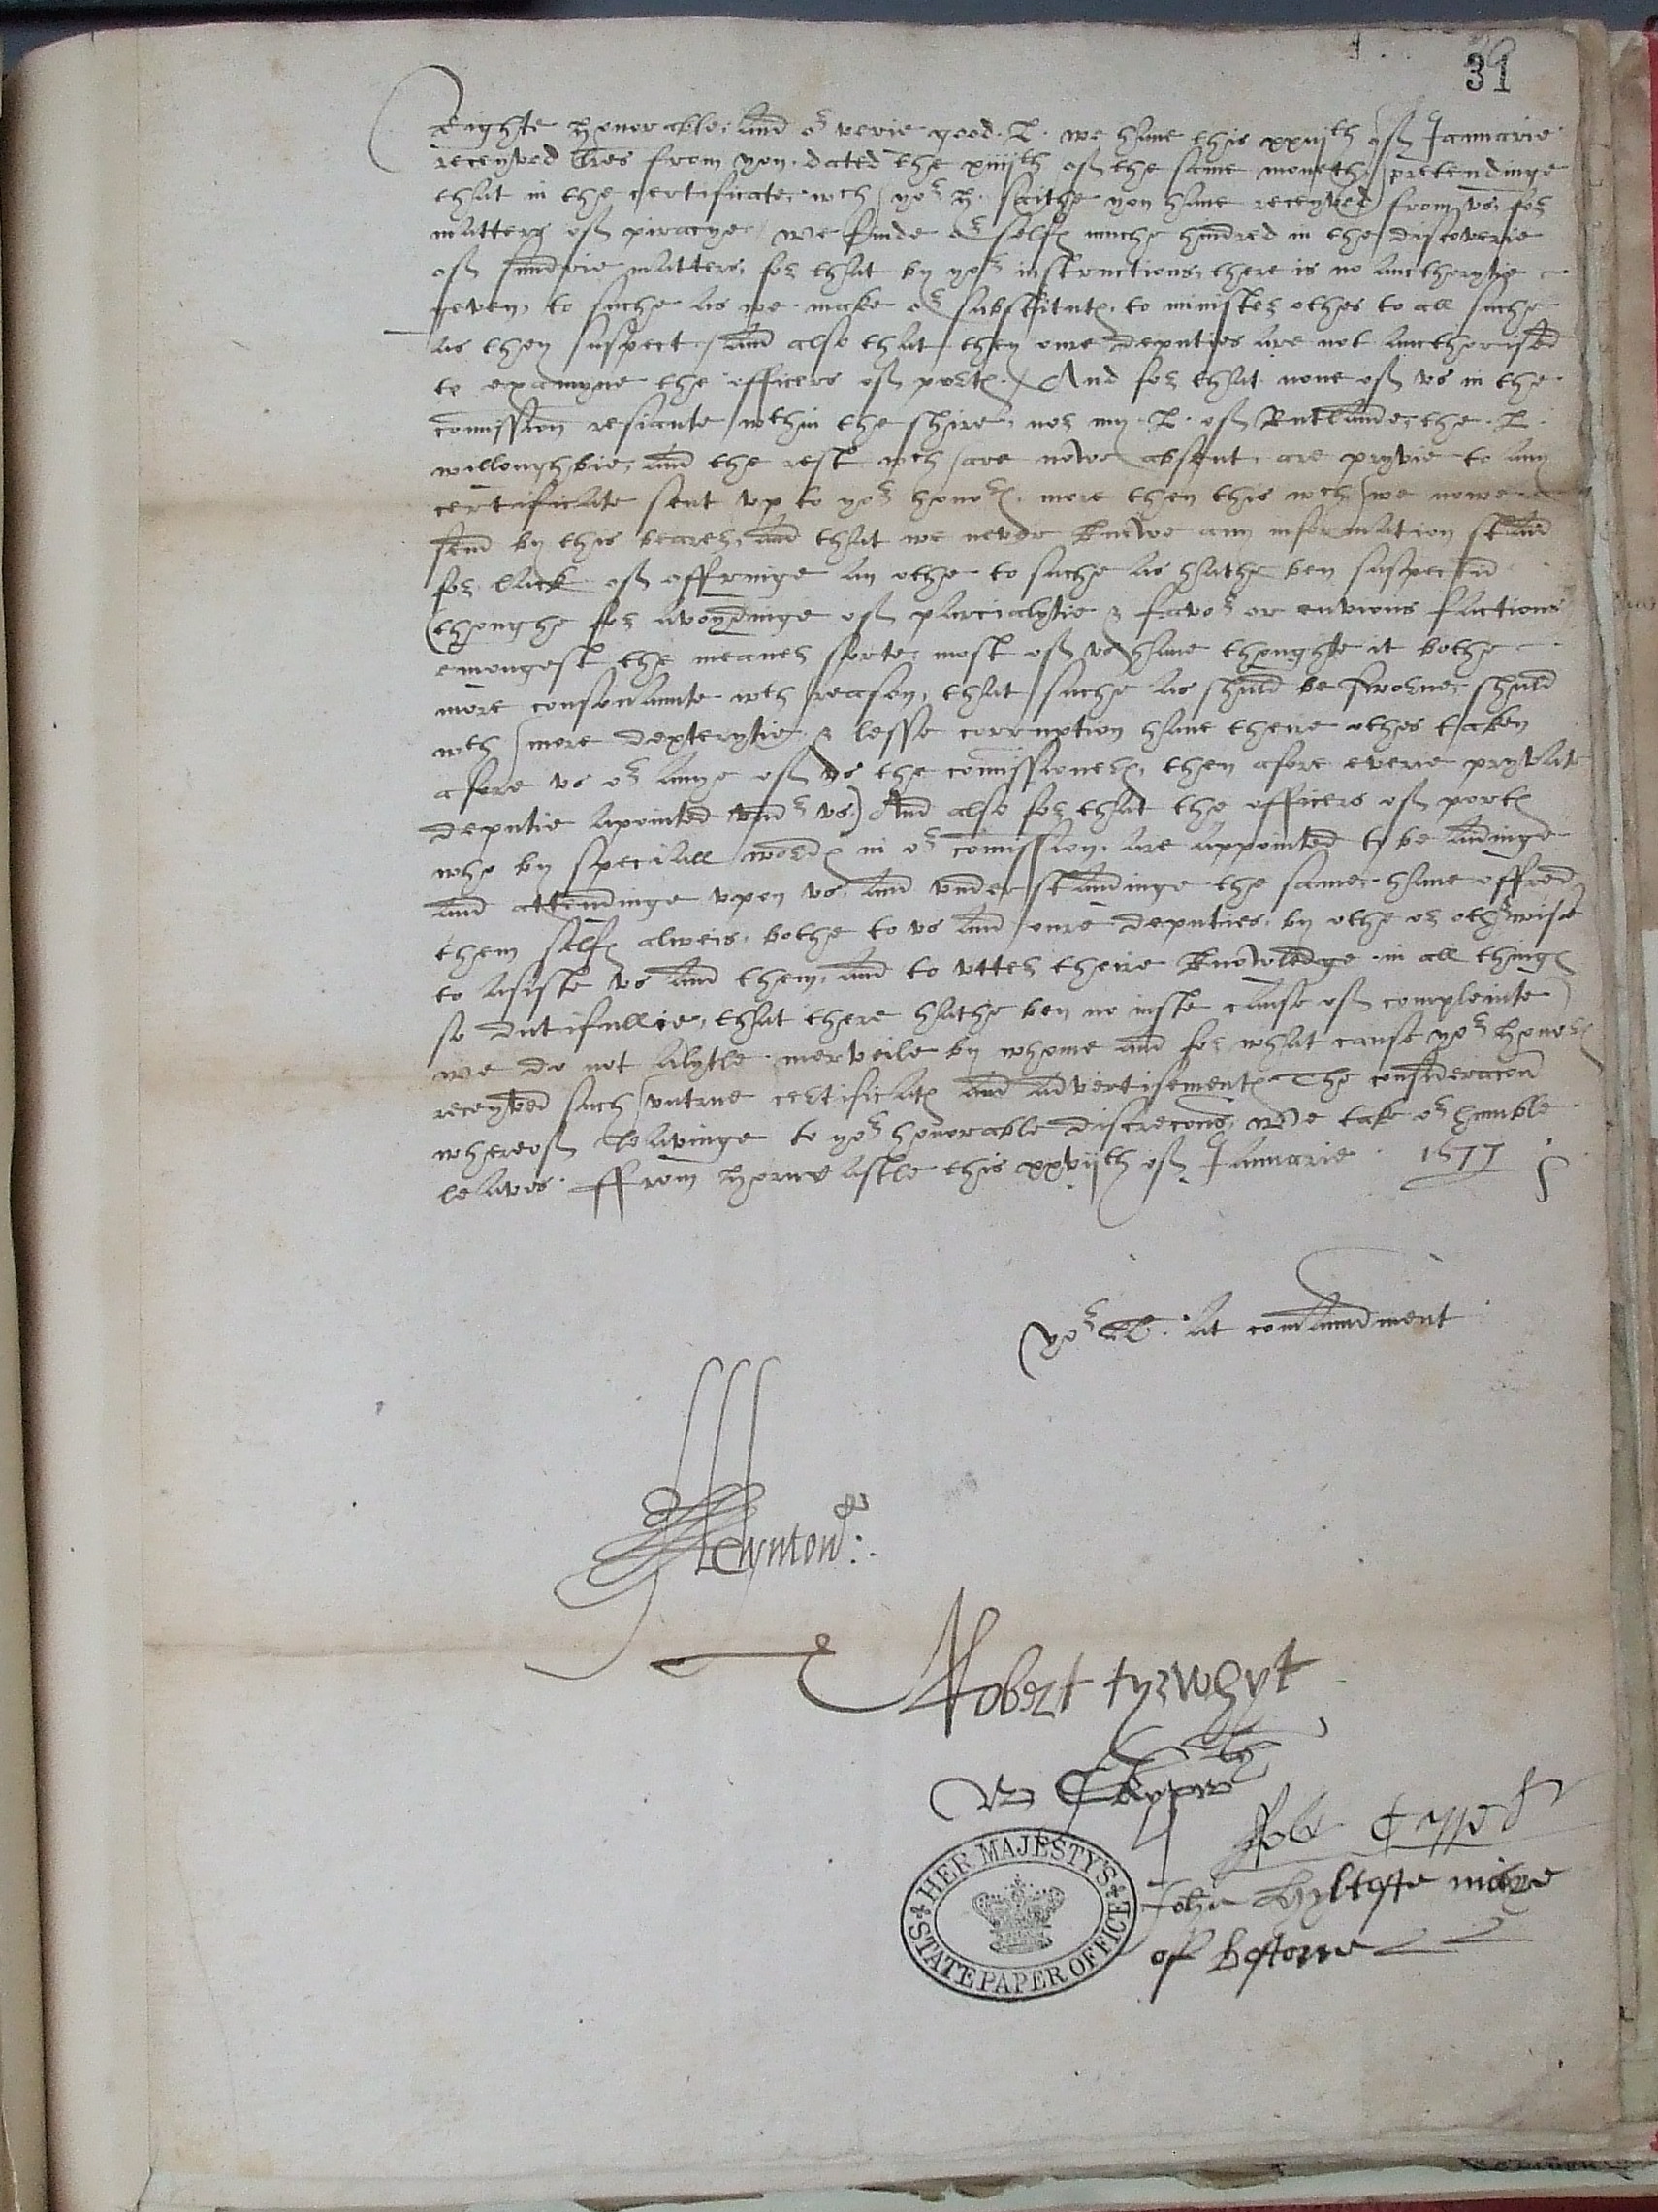 31
Righte honorable, and or verie good L. we haue this xxvijth off Januarie
receyved lres from you dated the xiiijth off the same moneth, pretendinge
that in the certificate, wch yor h. saithe you haue receyved from vs, for
matters off piracye, we finde or selfes muche hindred in the discoverie
off sundrie matters, for that by yor instructions, there is no aucthorytie
geven, to suche as we make or substitutes, to minister othes to all suche
as they suspect, And also that they oure deputies are not aucthorised
to examyne the officers off portes. And for that none off vs in the
comission resiante wthin the shire, nor my L. off Rutlande, the L.
willoughbie, and the rest wch are nowe absent, are pryvie to any
certificate sent vp to yor honors, more then this wch we nowe
send by this bearer, and that we never knewe any information staid
for lack off offringe an othe to suche as hathe ben suspected
(thoughe for avoydinge off parcialytie & favor or envious factions
emongest the meaner sorte, most off vs haue thoughte it bothe
more consonante wth reason, that suche as shuld be sworne, shuld
wth more dexterytie & lesse corruption haue theire othes taken
afore vs or anye off vs the comissioners, then afore everie pryvate
deputie apointed vnder vs) And also for that the officers off portes
who by speciall wordes in or comission, are appointed to be aidinge
and attendinge vpon vs, and vnderstandinge the same, haue offred
them selfes alweis, bothe to vs and oure deputies, by othe or otherwise
to assiste vs and them, and to vtter theire knowledge in all thinges
so dutifullie, that there hathe ben no iuste cause off compleinte
we do not alytle merveile by whome and for what cause yor honors
receyved such vntrue certificates and advertisementes The consideracon
whereoff leavinge to yor honorable discrecons, we take or humble
leaves. ffrom Horncastle this xxvijth off Januarie 1577
yor LL. at comaundment
Clynton
Robert tyrwhyt
Skypwth
John
mare
of bostone
HER MAJESTY'S STATE PAPER OFFICE